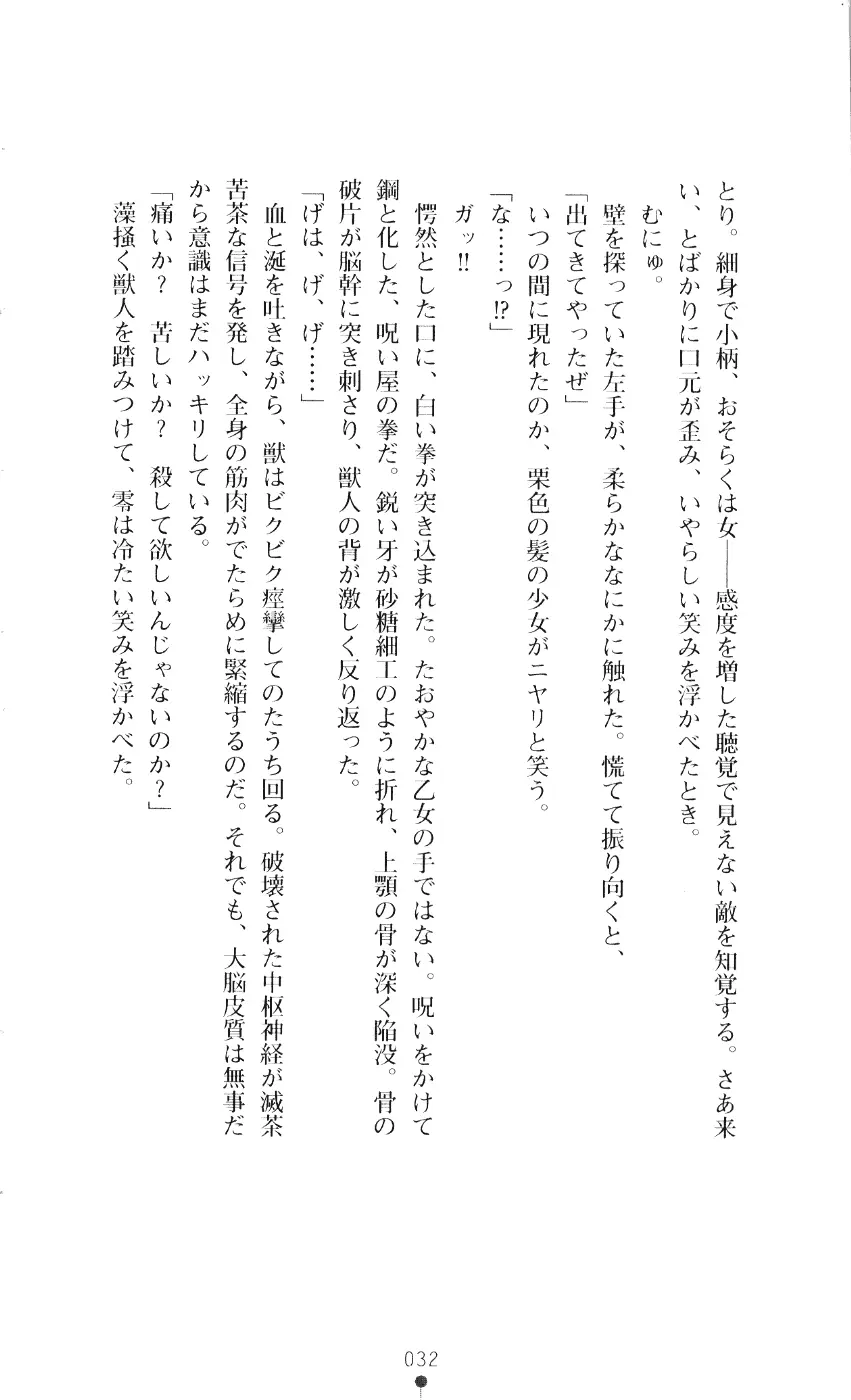 とり。細身で小柄、おそらくは女――感度を増した聴覚で見えない敵を知覚する。さあ来
い、とばかりに口元が歪み、いやらしい笑みを浮かべたとき。
むにゅ。
壁を探っていた左手が、柔らかななにかに触れた。慌てて振り向くと、
「出てきてやったぜ」
いつの間に現れたのか、栗色の髪の少女がニヤリと笑う。
「な……っ!?」
ガッ!!
愕然とした口に、白い拳が突き込まれた。たおやかな乙女の手ではない。呪いをかけて
鋼と化した、呪い屋の拳だ。鋭い牙が砂糖細工のように折れ、上顎の骨が深く陥没。骨の
破片が脳幹に突き刺さり、獣人の背が激しく反り返った。
「げは、げ、げ……」
血と涎を吐きながら、獣はビクビク痙攣してのたうち回る。破壊された中枢神経が滅茶
苦茶な信号を発し、全身の筋肉がでたらめに緊縮するのだ。それでも、大脳皮質は無事だ
から意識はまだハッキリしている。
「痛いか？　苦しいか？　殺して欲しいんじゃないのか？」
藻掻く獣人を踏みつけて、零は冷たい笑みを浮かべた。
032